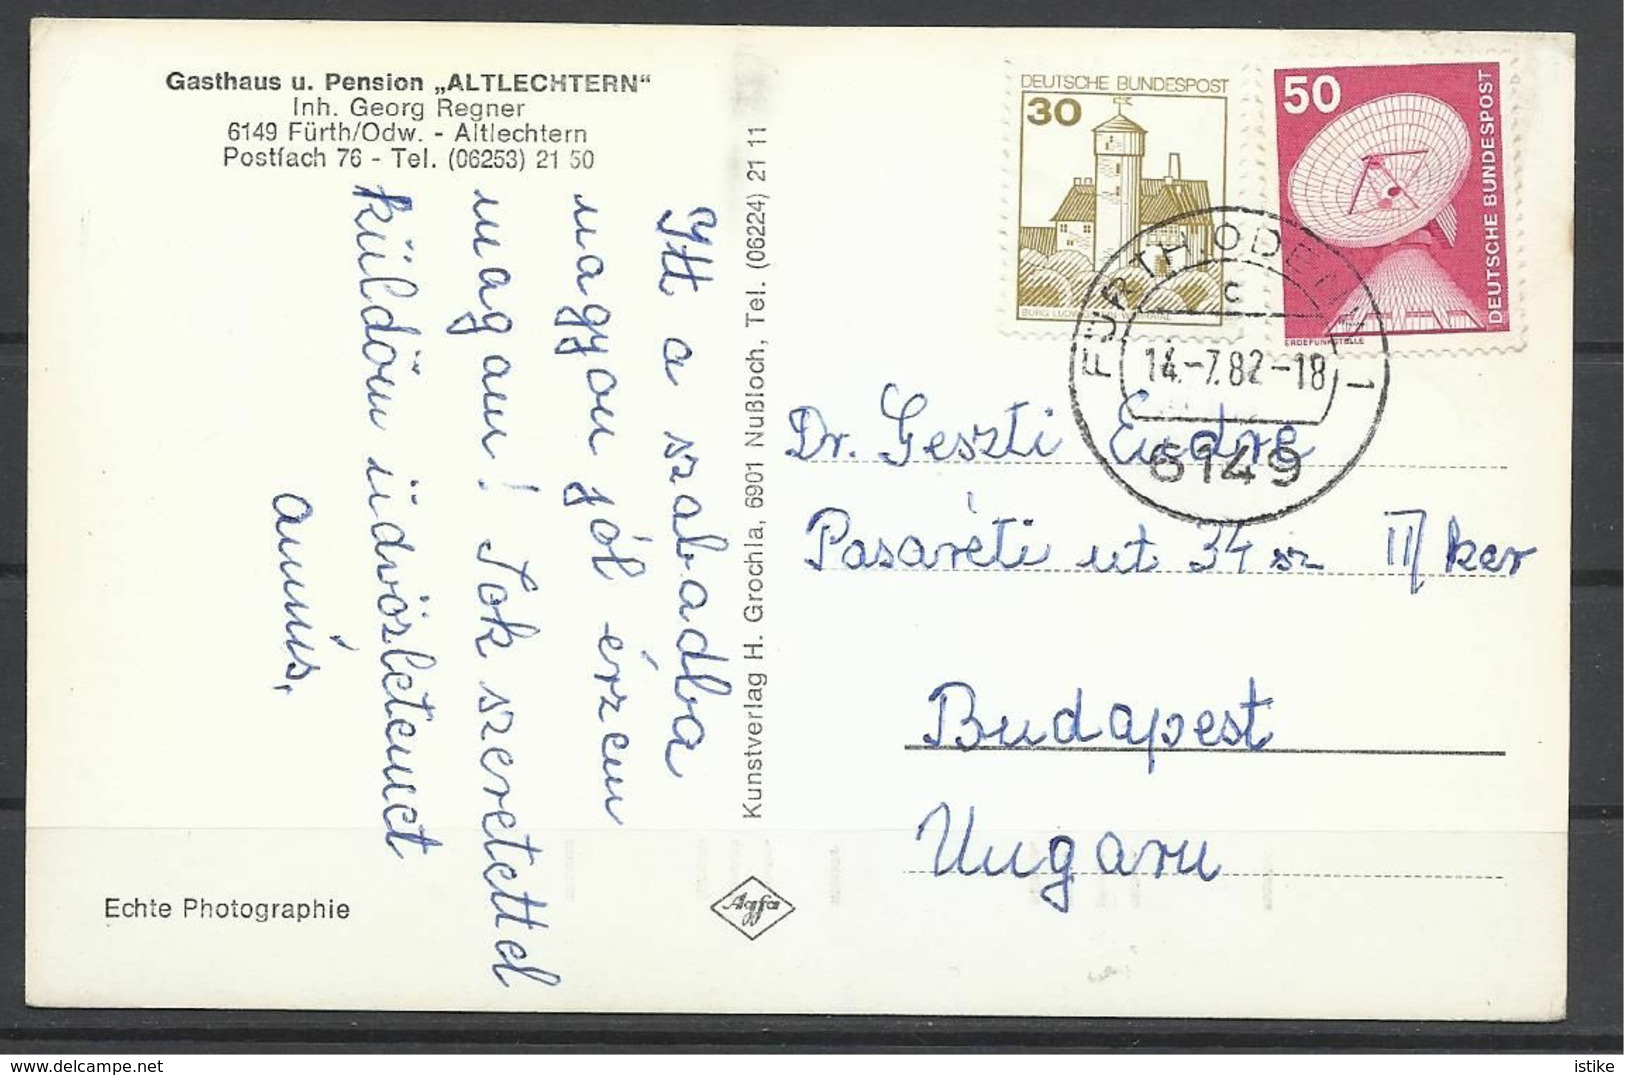 Gasthaus u. Pension „ALTLECHTERN“
Inh. Georg Regner
6149 Fürth/Odw. - Altlechtern
Postfach 76 - Tel. (06253) 21 50
Itt a szabadba
nagyon jól érzem
magam! Sok szeretettel
küldöm üdvözletemet
annus.
Echte Photographie
Kunstverlag H. Grochla, 6901 Nußloch, Tel. (06224) 21 11
Agfa
DEUTSCHE BUNDESPOST
30
50
DEUTSCHE BUNDESPOST
ERDEFUNKSTELLE
FÜRTH, ODENW 1
c
14.-7.82-18
6149
Dr. Geszti Endre
Pasaréti ut 34 sz II/ ker
Budapest
Ungarn
www.delcampe.net
istike